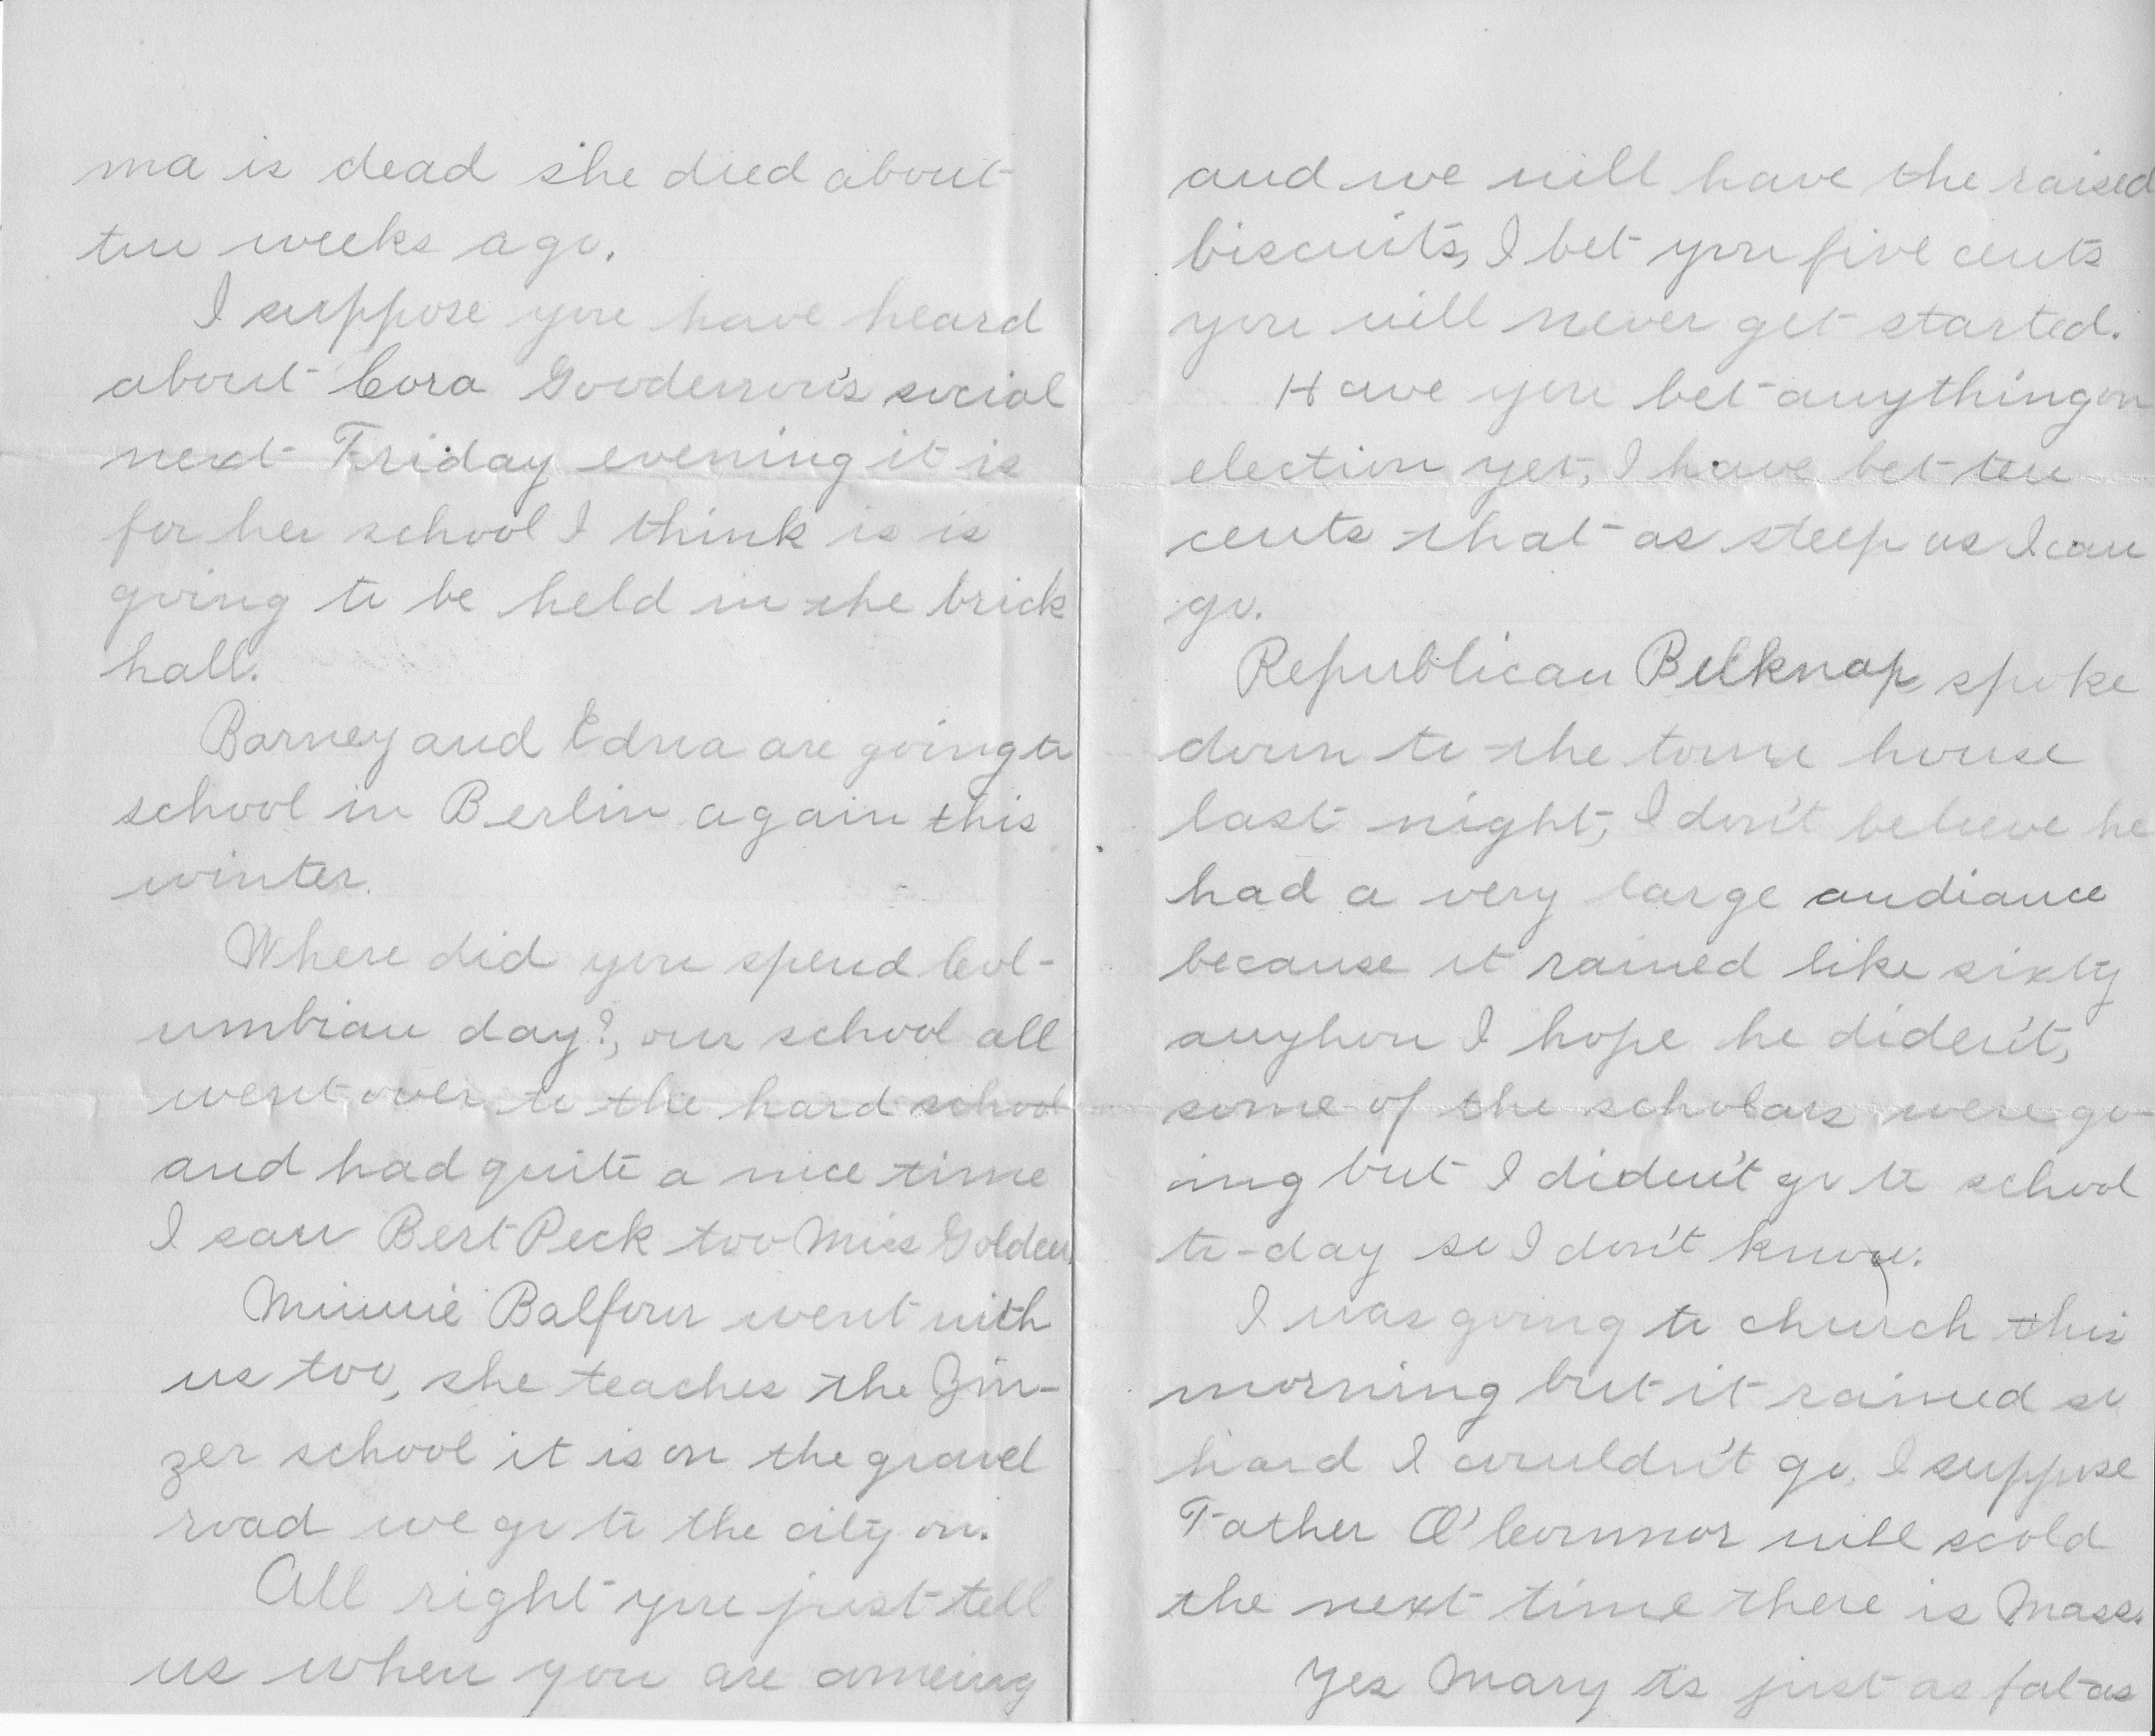 ma is dead she died about
ten weeks ago.
I suppose you have heard
about Cora Goodenson's social
next Friday evening it is
for her school I think is is
going to be held in the brick
hall.
Barney and Edna are going to
school in Berlin again this
winter.
Where did you spend Col-
umbian day?, our school all
went over to the hard school
and had quite a nice time
I saw Bert Peck too Miss Golden.
Minnie Balfour went with
us too, she teaches the Zin-
zer school it is on the gravel
road we go to the city on.
All right you just tell
us when you are comeing
and we will have the raised
biscuits, I bet you five cents
you will never get started.
Have you bet anything on
election yet, I have bet ten
cents that as steep as I can
go.
Republican Belknap spoke
down to the town house
last night, I don't believe he
had a very large audiance
because it rained like sixty
anyhow I hope he diden't,
some of the scholars were go-
ing but I diden't go to school
to-day so I don't know.
I was going to church this
morning but it rained so
hard I couldn't go, I suppose
Father O'Connor will scold
the next time there is Mass.
Yes Mary is just as fat as